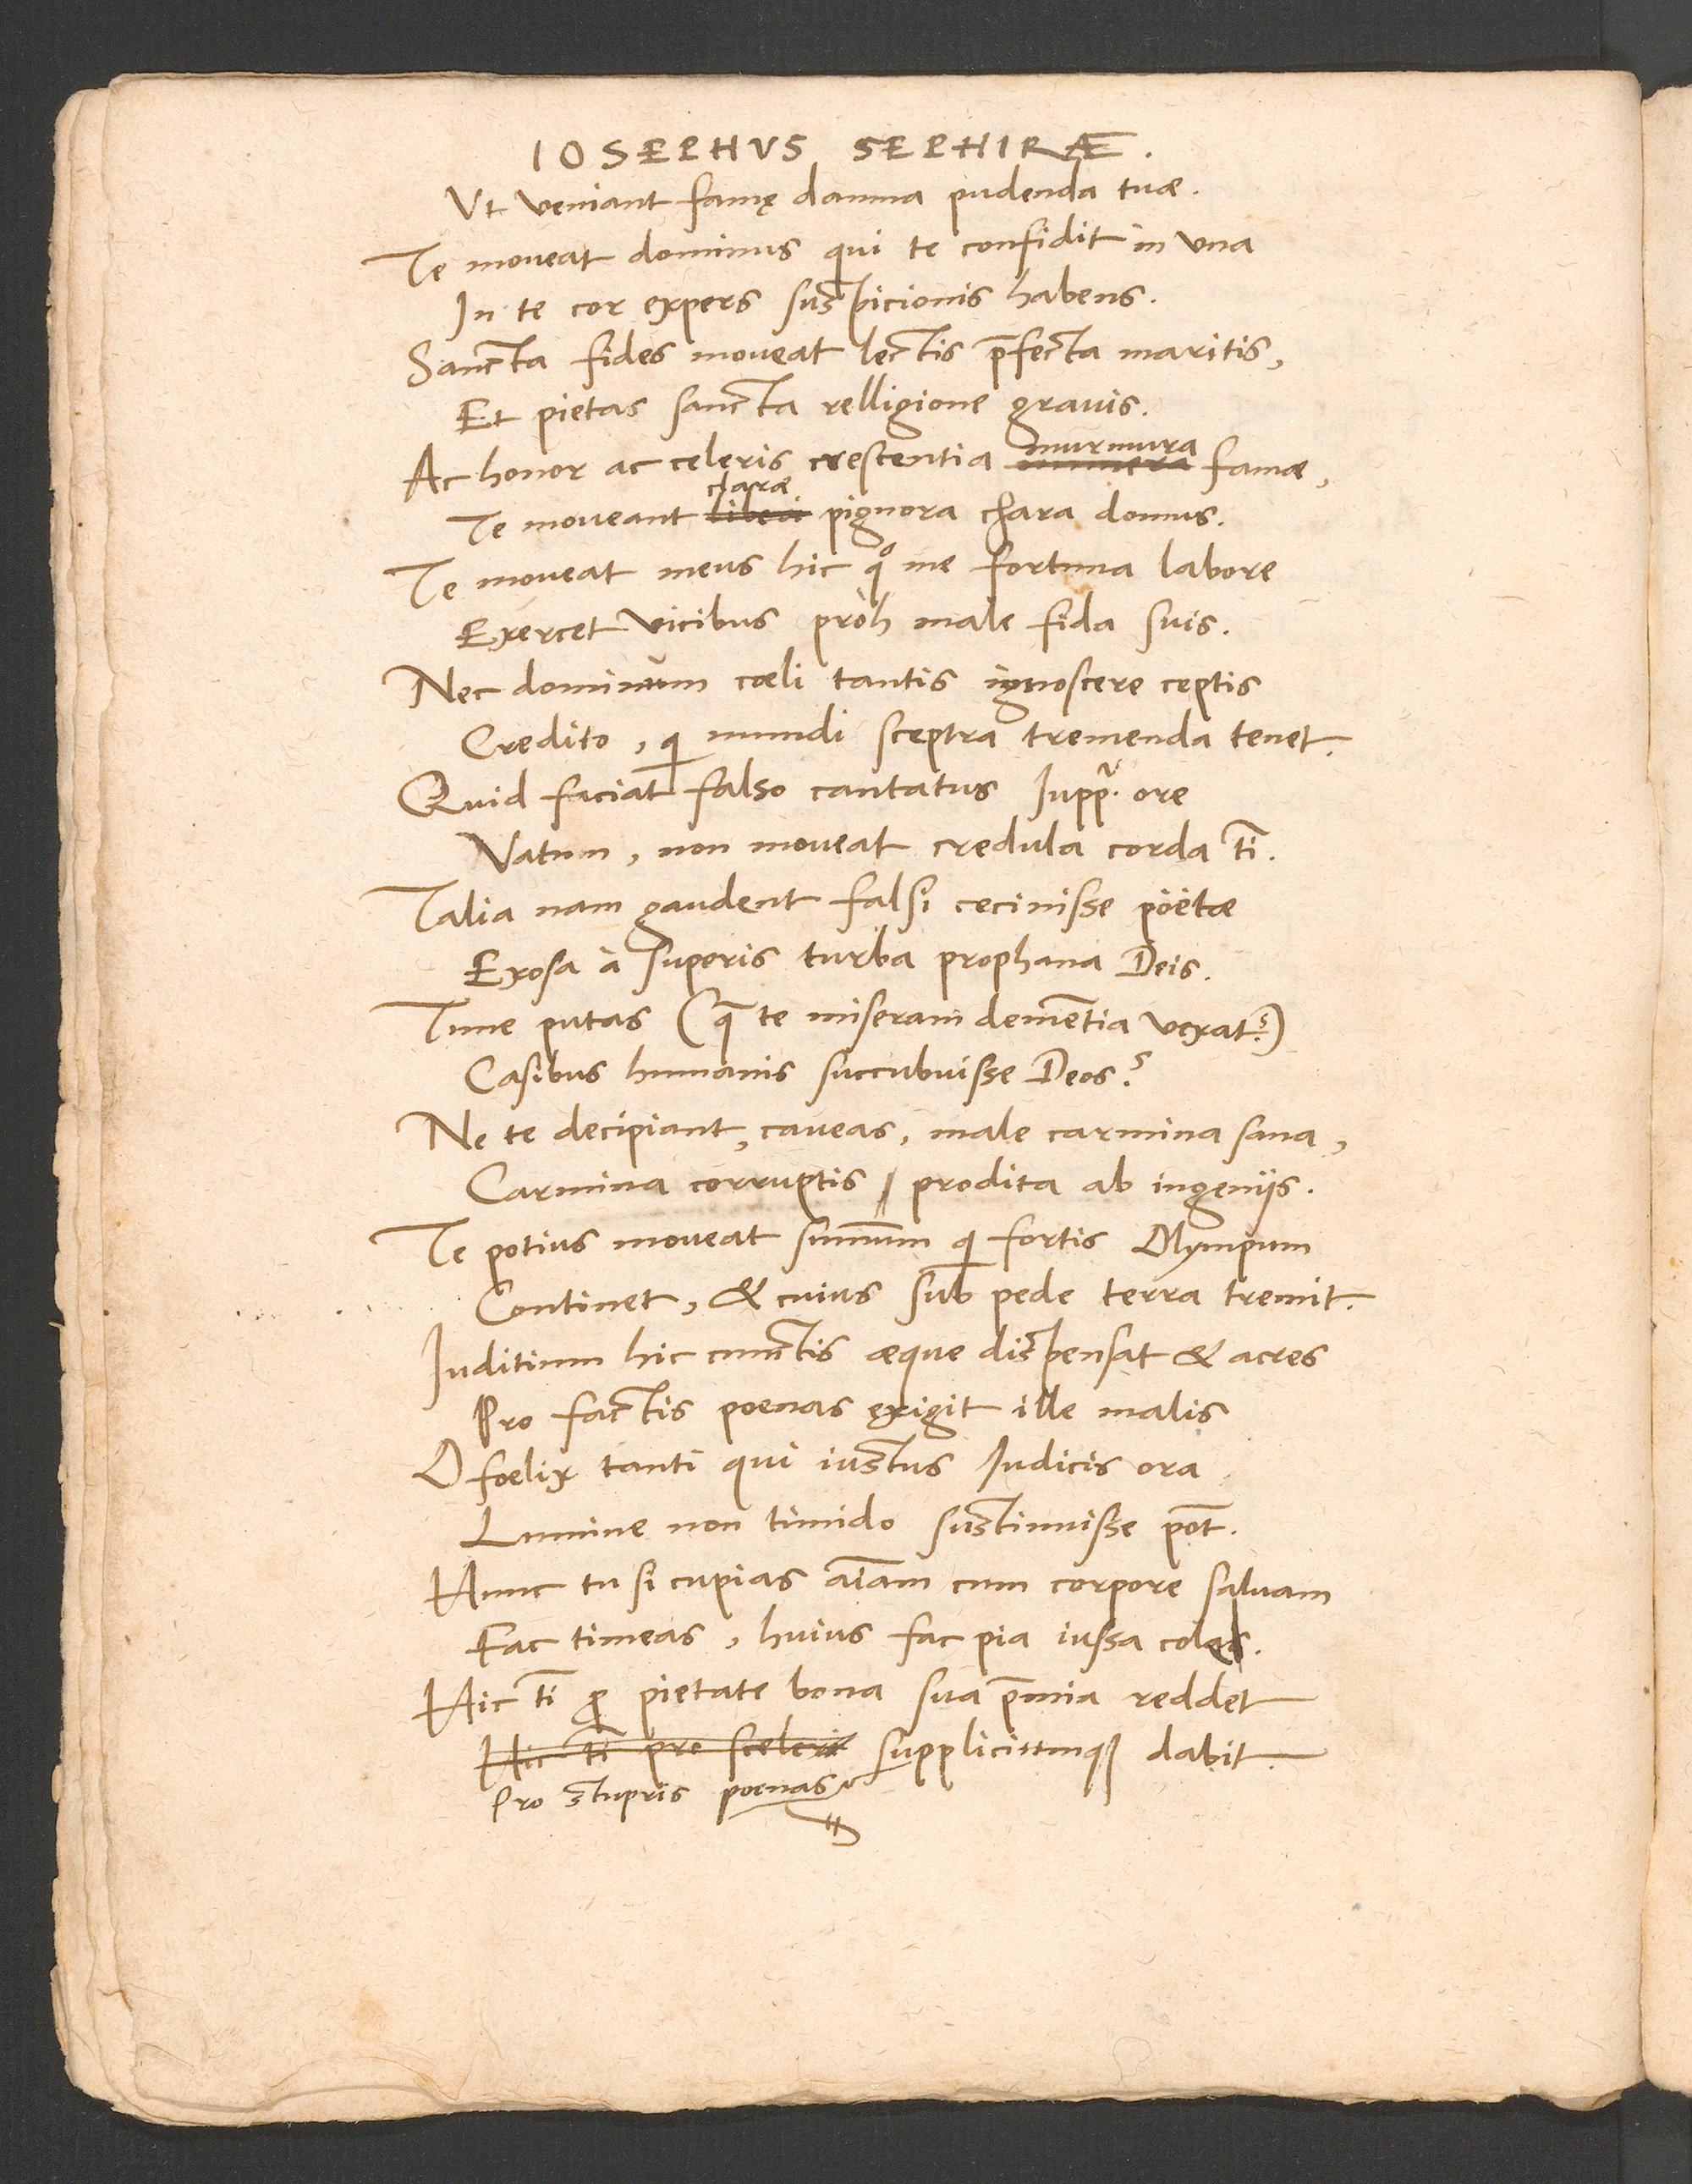 IOSEPHVS SEPHIRÆ.
Vt veniant famę damna pudenda tuæ.
Te moveat dominus qui te confidit in vna
In te cor expers suspicionis habens.
Sancta fides moveat lectis p̄fecta maritis,
Et pietas sancta relligione grauis.
murmura
Ac honor ac celeris crescentia munera famæ,
claræ
Te moveant pignora chara domus.
Te moveat meus hic q̊ me fortuna labore
Exercet vicibus pròh male fida suis.
Nec dominum cœli tantis ignoscere ceptis
Credito, q mundi sceptra tremenda tenet.
Quid faciat falso cantatus Iupp. ore
Vatum, non moveat credula corda t̄i.
Talia nam gaudent falsi cecinisse pöëtæ
Exosa à superis turba prophana Deis.
Tune putas (q̄ te miseram demētia vexat?)
Casibus humanis succubuisse Deos?
Ne te decipiant, caveas, male carmina sana,
Carmina corruptis prodita ab ingeniis.
Te potius moveat sum̄um q fortis Olympum
Continet, & cuius sub pede terra tremit.
Iuditium hic cunctis æque dispensat & acres
Pro factis poenas exigit ille malis
O foelix tanti qui iustus Iudicis ora
Lumine non timido sustinuisse pōt.
Hunc tu si cupias aīam cum corpore saluam
Fac timeas, huius fac pia iussa coles.
Hic t̄i ꝓ pietate bona sua p̄mia reddet
Hic t̄i pro sceleri suppliciumqꝫ dabit.
Pro stupris poenas